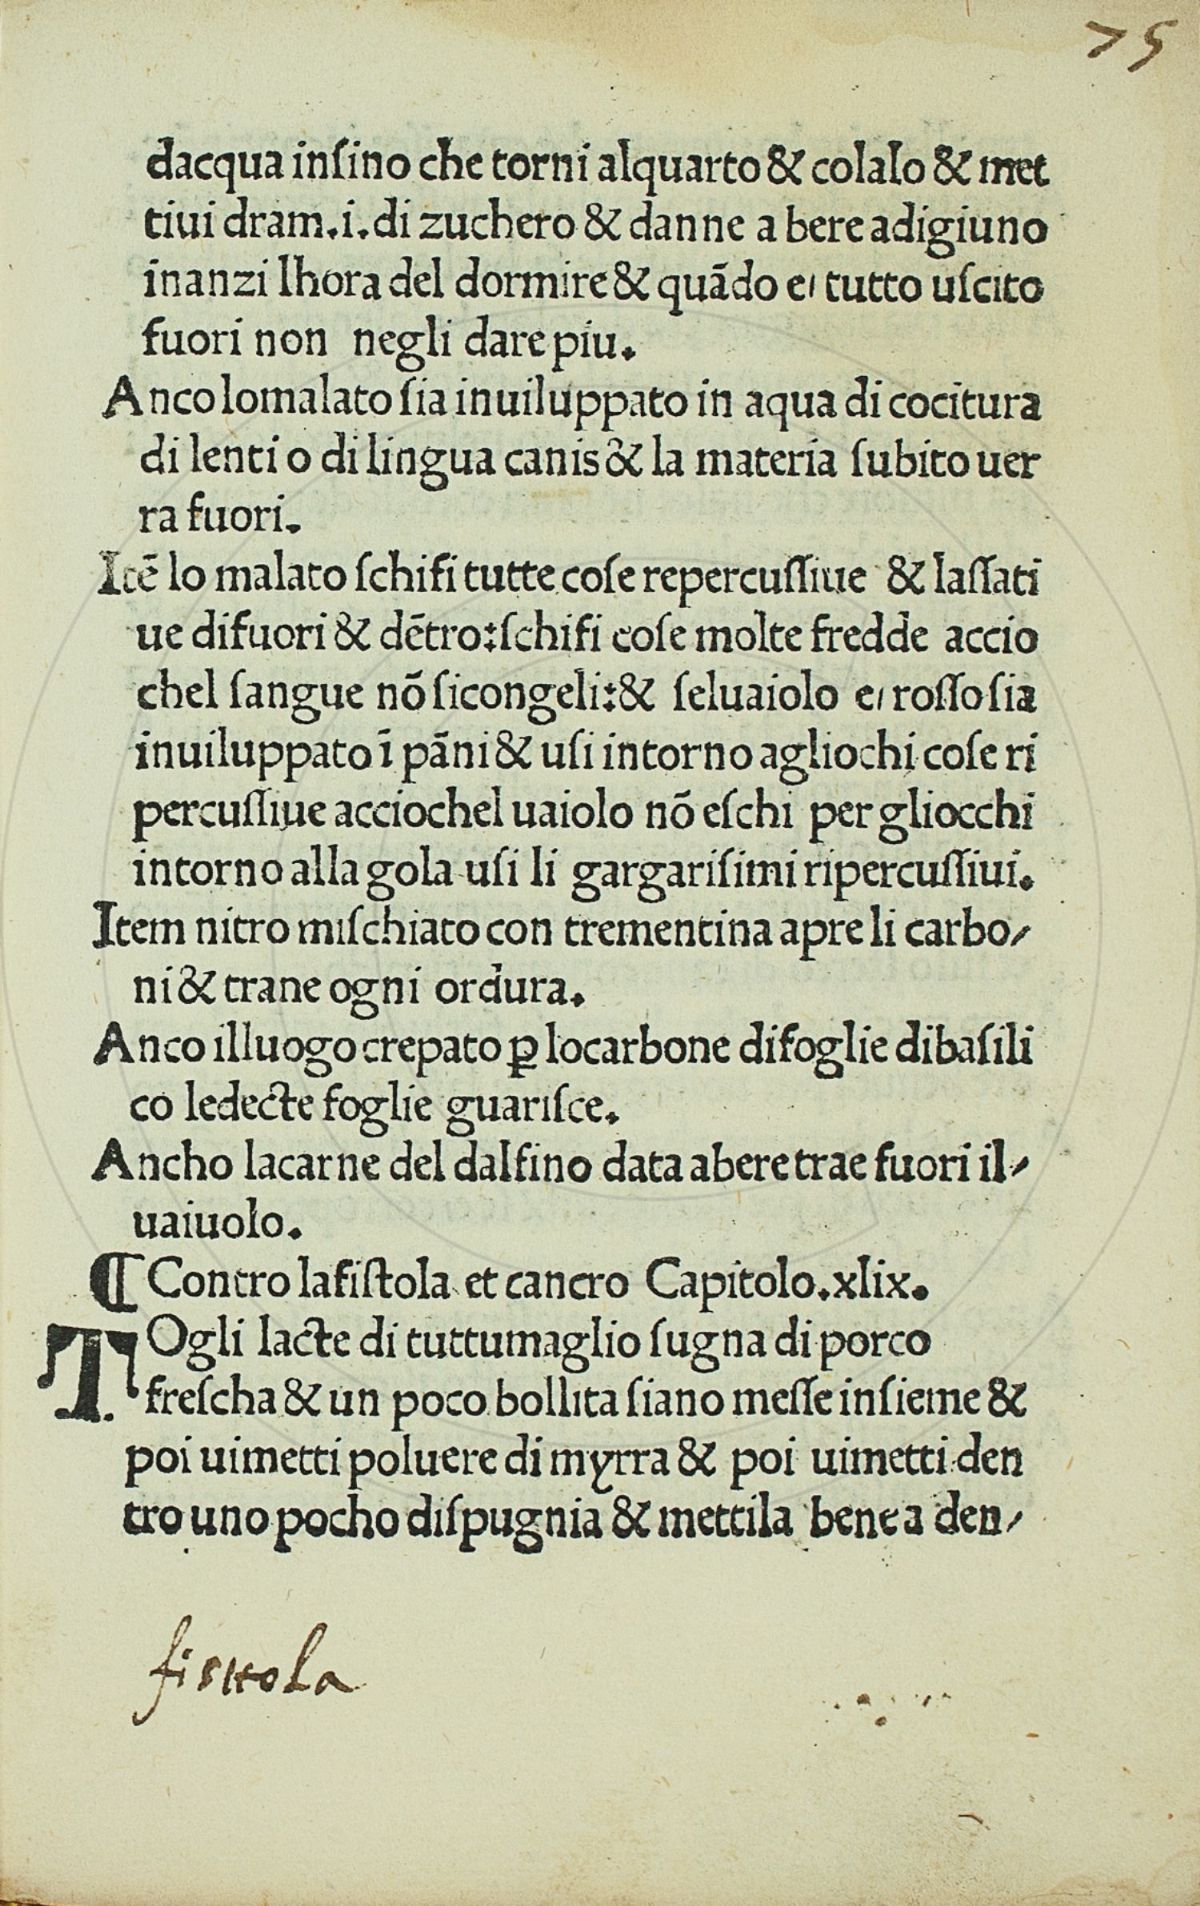 75
dacqua inſino che torni alquarto & colalo & met
tiui dram.i.di zuchero & danne a bere adigiuno
īnanzi lhora del dormire & quādo e, tutto uſcito
fuori non negli dare piu.
Anco lomalato ſia inuiluppato in aqua di cocitura
di lenti o di lingua canis & la materia ſubito uer
ra fuori.
Itē lo malato ſchifi tutte coſe repercuſſiue & laſſati
ue difuori & dētro:ſchifi coſe molte fredde accio
chel ſangue nō ſicongeli:& ſeluaiolo e, roſſo ſia
inuiluppato ī pāni & uſi intorno agliochi coſe ri
percuſſiue acciochel uaiolo nō eſchi per gliocchi
intorno alla gola uſi li gargariſimi ripercuſſiui.
Item nitro miſchiato con trementina apre li carbo/
ni & trane ogni ordura.
Anco illuogo crepato ꝑ locarbone difoglie dibaſili
co ledecte foglie guariſce.
Ancho lacarne del dalfino data abere trae fuori il/
uaiuolo.
¶ Contro lafiſtola et cancro Capitolo.xlix.
TOgli lacte di tuttumaglio ſugna di porco
freſcha & un poco bollita ſiano meſſe inſieme &
poi uimetti poluere di myrra & poi uimetti den
tro uno pocho diſpugnia & mettila bene a den/
fisttola